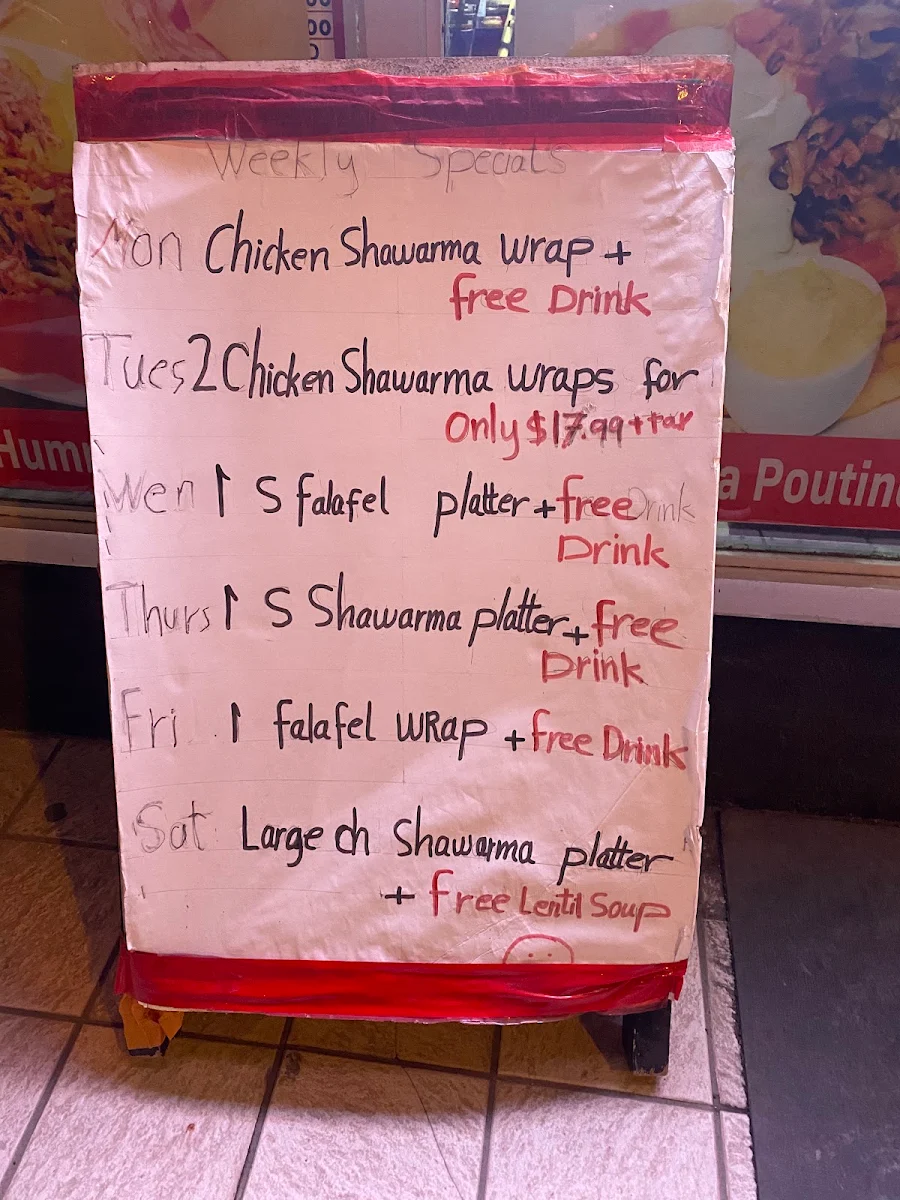 Weekly Specials
Mon Chicken Shawarma wrap +
free Drink
Tues 2 Chicken Shawarma wraps for
Only $17.99 + tax
Wen 1 S falafel platter + free Drink
Drink
Thurs 1 S Shawarma platter + free
Drink
Fri 1 falafel WRap + free Drink
Sat Large ch Shawarma platter
+ free Lentil Soup
Humm
a Poutin